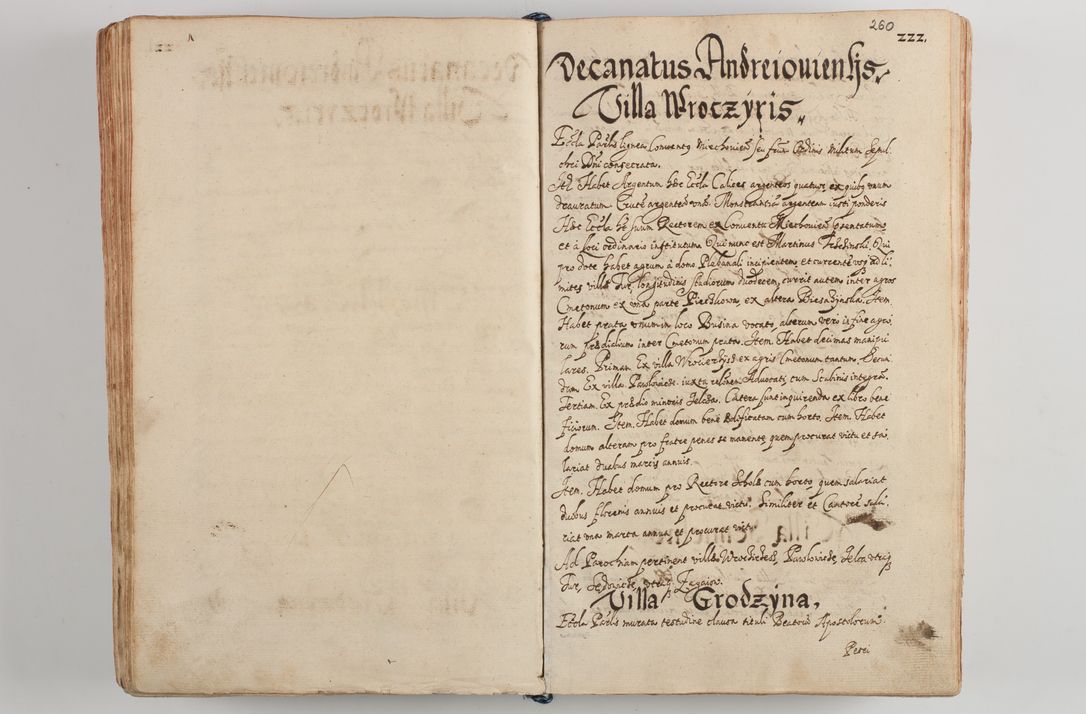 260
ZZZ.
Decanatus Andreiouiensis.
Villa Wroczyris
Eccla Parlis lignea Conventq Miechouien seu frum Ordinis Militum Sepul,
chri Dni consecrata.
Itẽ Habet Argentum hæc Eccla Calices argenteos quatuor ex quibq unum
deauratum. Crucẽ argenteã vnã. Monstrantiã argenteam iusti ponderis
Hæc Eccla ht suum Rectorem ex Conventu Miechouien pñsentatum
et à Loci ordinario institutum Qui nunc est Martinus Qui
pro dote habet agrum à domo Plebanali incipientem et currentẽ vsq ad li,
mites villæ Tur, longitudinis stadiorum duodecem, currit autem inter agros
Cmetonum ex vna parte Pieczkowa, ex altera Biesadzinska. Item.
Habet prata vnum in loco Budina vocato, alterum vero in fine agro,
rum prædialium inter Cmetonum prata. Item. Habet decimas manipu
lares. Primam Ex villa ex agris Cmetonum tantum. Secun
dam Ex villa Pawlowicze. iuxta relõnem Aduocati, cum Scabinis integrã.
Tertiam. Ex prædio minoris Jelcza. Cætera sunt inquirenda ex libro bene
ficiorum. Item. Habet domum bene ædificatam cum horto. Item. Habet
domum alteram pro fratre penes se manente, quem procurat victu et sa,
lariat duabus marcis annuis.
Item. Habet domum pro Rectore Scholæ cum horto, quem salariat
duobus florenis annuis et procurat victu. Similiter et Cantorẽ sala,
riat vna marca annua et procurat victu.
Ad Parochiam pertinent villæ Pawlowicze, Jelca vtraq
Tur, vtraq Zagaiow.
Villa Grodzyna,
Eccla Parlis murata testudine clausa tituli Beatorũ Apostolorum
Petri